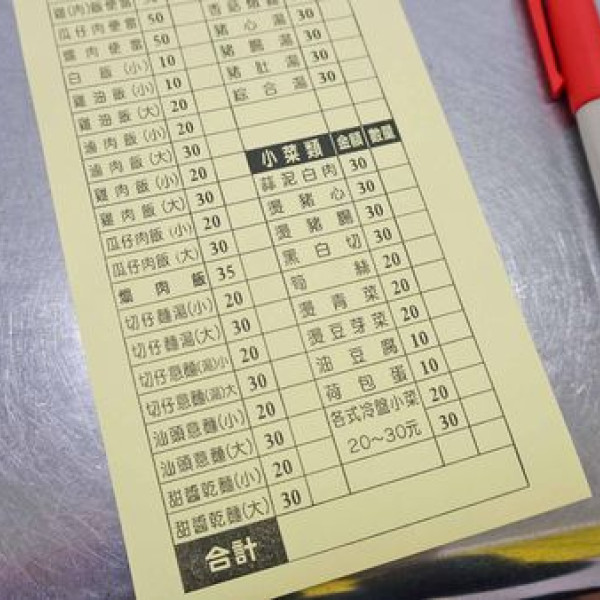 雞(肉)飯便當
瓜仔肉便當 50
爌肉便當 50
白飯(小) 10
雞油飯(小) 10
雞油飯(大) 20
滷肉飯(小) 20
滷肉飯(大) 30
雞肉飯(小) 20
雞肉飯(大) 30
瓜仔肉飯(小) 20
瓜仔肉飯(大) 30
爌肉飯 35
切仔麵湯(小) 20
切仔麵湯(大) 30
切仔意麵(湯)小 20
切仔意麵(湯)大 30
汕頭意麵(小) 20
汕頭意麵(大) 30
甜醬乾麵(小) 20
甜醬乾麵(大) 30
合計
30
豬心湯 30
豬腸湯 30
豬肚湯 30
綜合湯 30
小菜類 金額 數量
蒜泥白肉 30
燙豬心 30
燙豬腸 30
黑白切 30
筍絲 20
燙青菜 20
燙豆芽菜 20
油豆腐 10
荷包蛋 10
各式冷盤小菜 20
20～30元 30